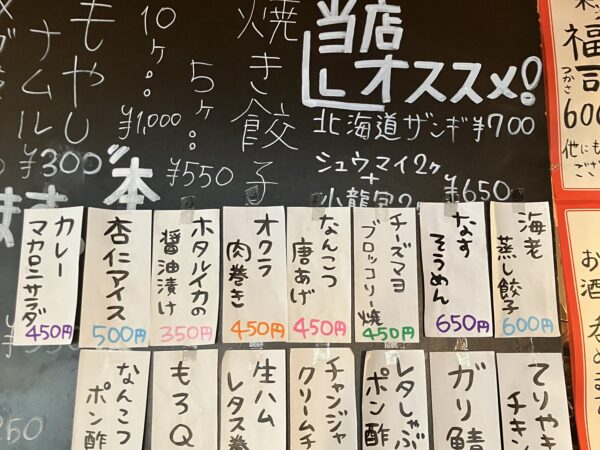 当店
オススメ!
北海道ザンギ¥700
シュウマイ2ヶ
+
小籠包2
¥650
焼き餃子
5ヶ
¥550
10ヶ
¥1,000
もやし
ナムル
¥300
本
福
つかさ
600
他にも
ござ
お酒
海老
蒸し餃子
600円
なす
そうめん
650円
チーズマヨ
ブロッコリー焼
450円
なんこつ
唐あげ
450円
オクラ
肉巻き
450円
ホタルイカの
醤油漬け
350円
杏仁アイス
500円
カレー
マカロニサラダ
450円
てりやき
チキン
ガリ鯖
レタしゃぶ
ポン酢
チャンジャ
クリームチ
生ハム
レタス巻
もろQ
なんこつ
ポン酢